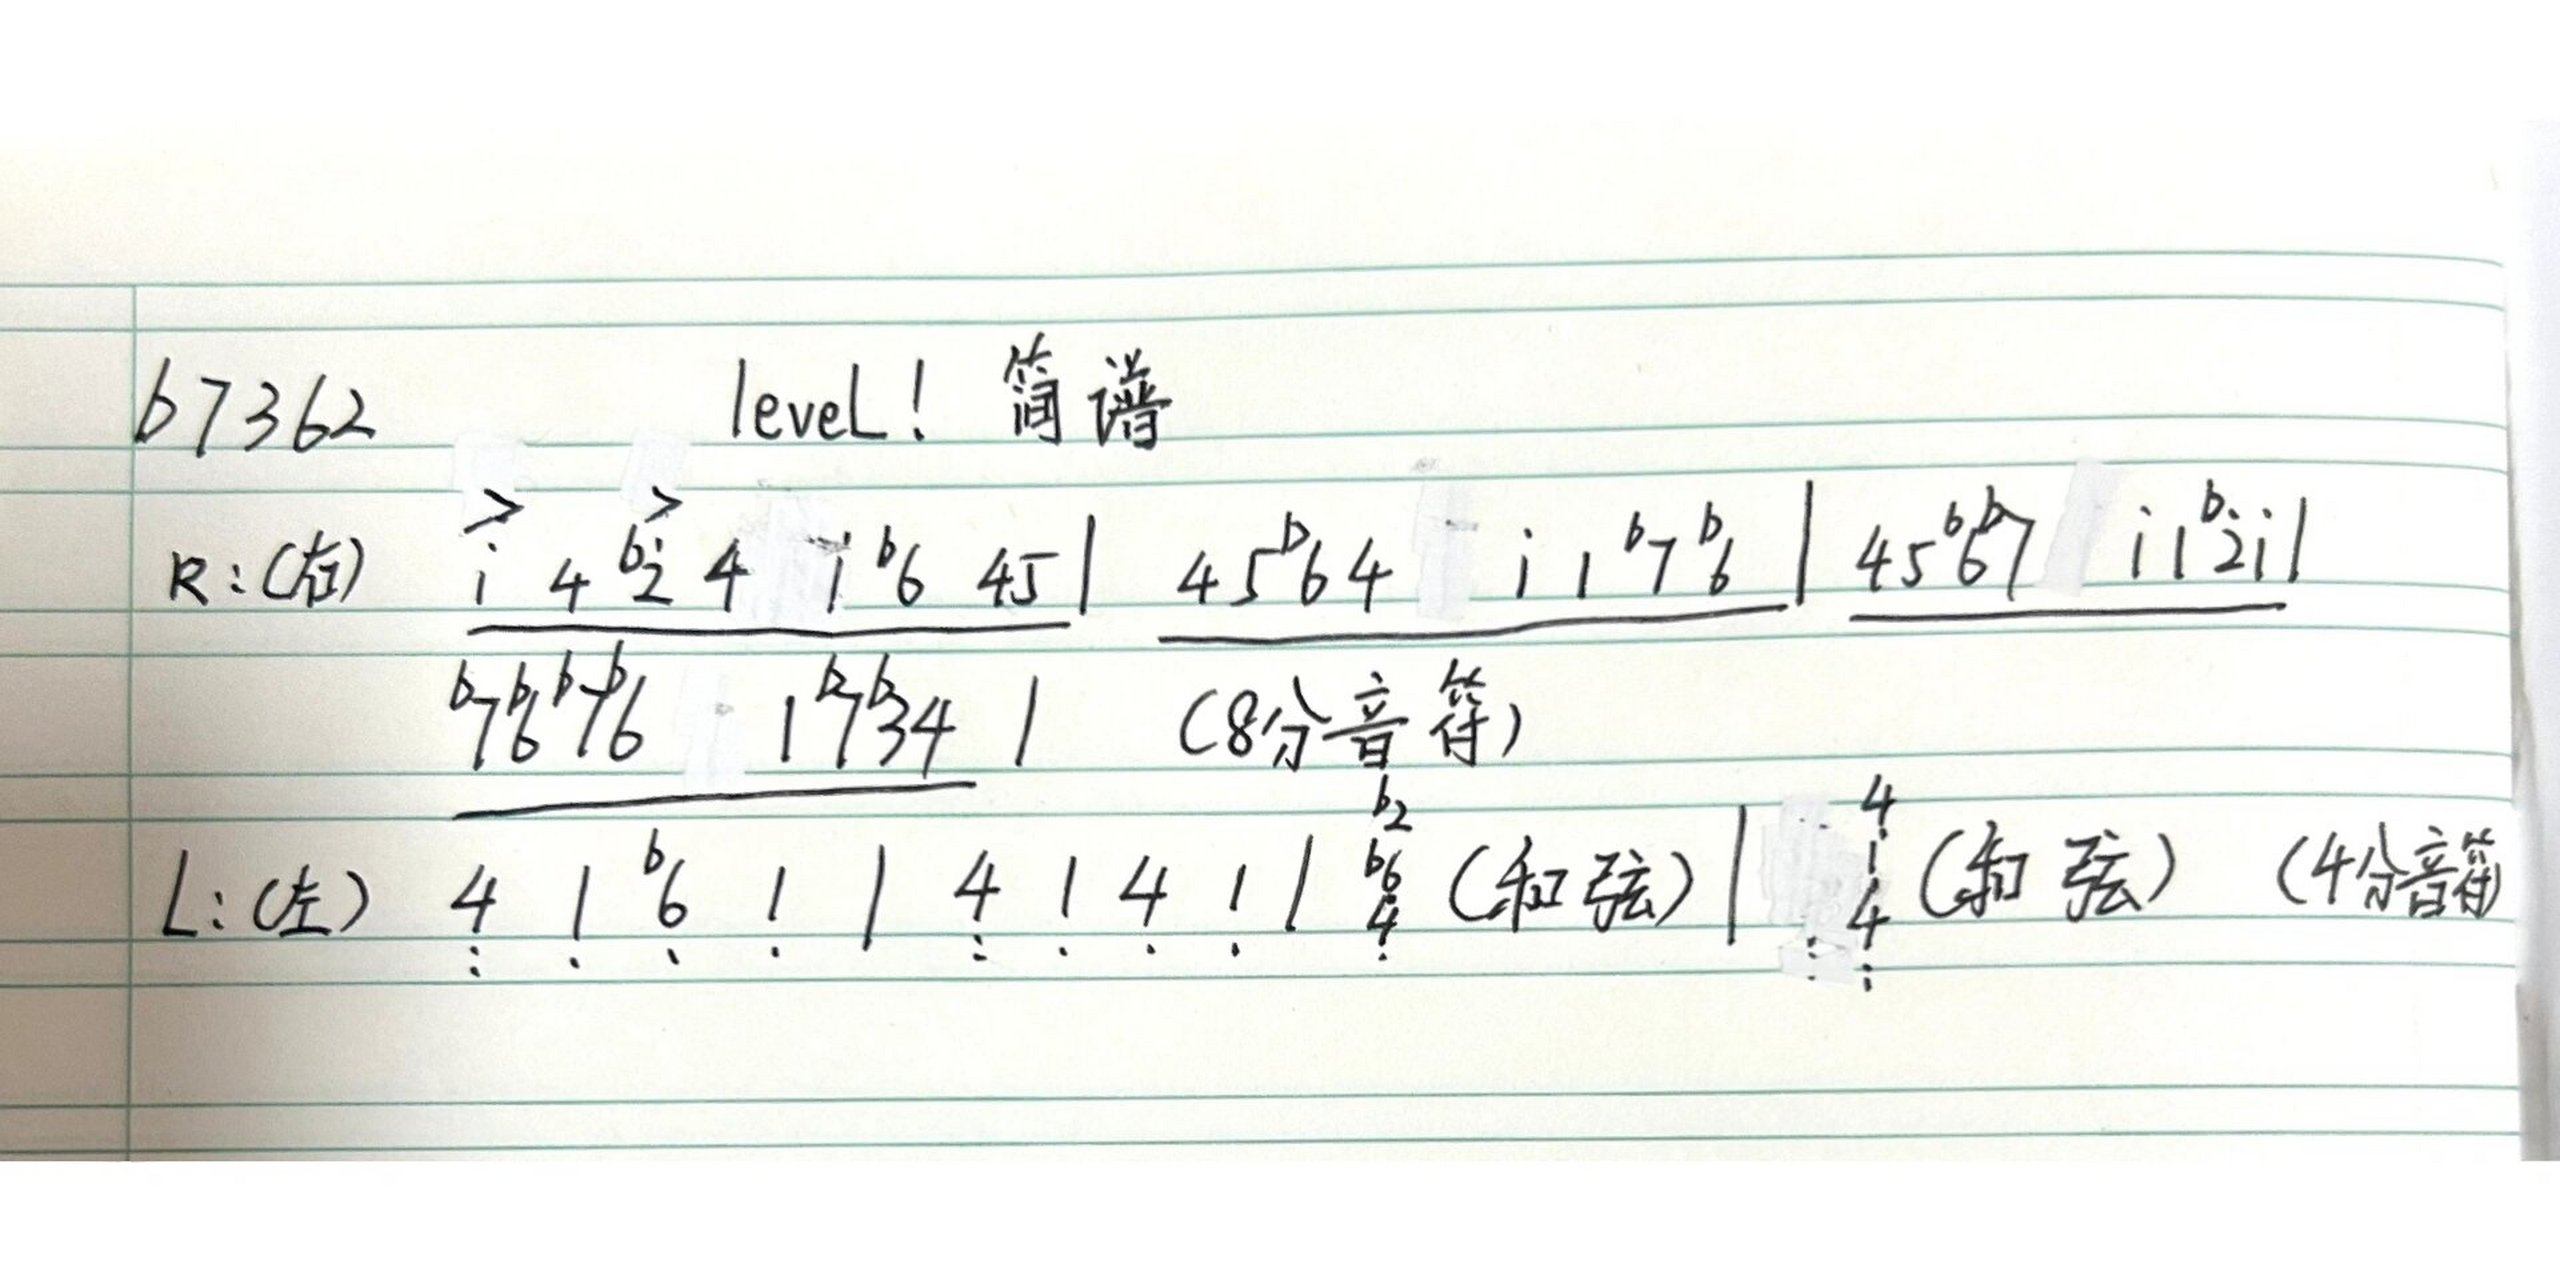 b7362 level! 简谱
R:(右) i 4 b2 4 i b6 45 | 45b64 i 1 b7 b6 | 45b6b7 i 1 b2 i |
b7b6b7b6 1b7b34 | (8分音符)
L:(左) 4 1 b6 1 | 4 1 4 1 | b2 b6 4 (和弦) | 4 1 4 (和弦) (4分音符)